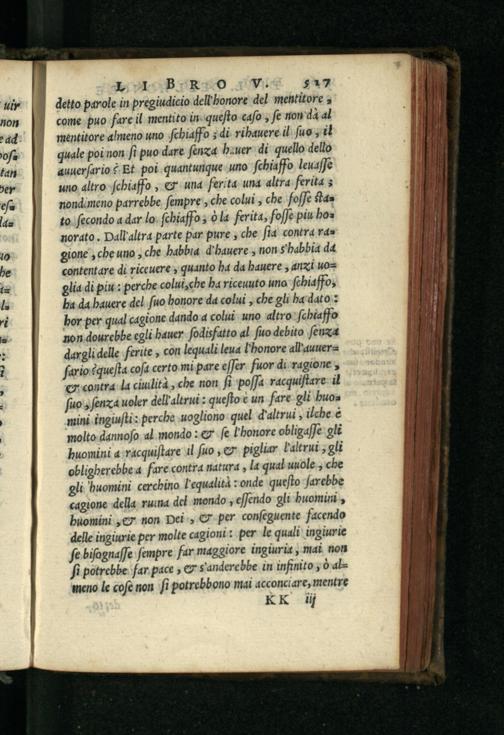 LIBRO V. 527
detto parole in pregiudicio dell'honore del mentitore,
come puo fare il mentito in questo caso, se non dà al
mentitore almeno uno schiaffo; di rihauere il suo, il
quale poi non si puo dare senza hauer di quello dello
auuersario? Et poi quantunque uno schiaffo leuasse
uno altro schiaffo, & una ferita una altra ferita;
nondimeno parrebbe sempre, che colui, che fosse sta=
to secondo a dar lo schiaffo, ò la ferita, fosse piu ho=
norato. Dall'altra parte par pure, che sia contra ra=
gione, che uno, che habbia d'hauere, non s'habbia da
contentare di riceuere, quanto ha da hauere, anzi uo=
glia di piu: perche colui, che ha riceuuto uno schiaffo,
ha da hauere del suo honore da colui, che gli ha dato:
hor per qual cagione dando a colui uno altro schiaffo
non dourebbe egli hauer sodisfatto al suo debito senza
dargli delle ferite, con lequali leua l'honore all'auuer=
sario? questa cosa certo mi pare esser fuor di ragione,
& contra la ciuilità, che non si possa racquistare il
suo, senza uoler dell'altrui: questo è un fare gli huo=
mini ingiusti: perche uogliono quel d'altrui, ilche è
molto dannoso al mondo: & se l'honore obligasse gli
huomini a racquistare il suo, & pigliar l'altrui, gli
obligherebbe a fare contra natura, la qual uuole, che
gli huomini cerchino l'equalità: onde questo sarebbe
cagione della ruina del mondo, essendo gli huomini,
huomini, & non Dei, & per conseguente facendo
delle ingiurie per molte cagioni: per le quali ingiurie
se bisognasse sempre far maggiore ingiuria, mai non
si potrebbe far pace, & s'anderebbe in infinito, ò al=
meno le cose non si potrebbono mai acconciare, mentre
KK iij